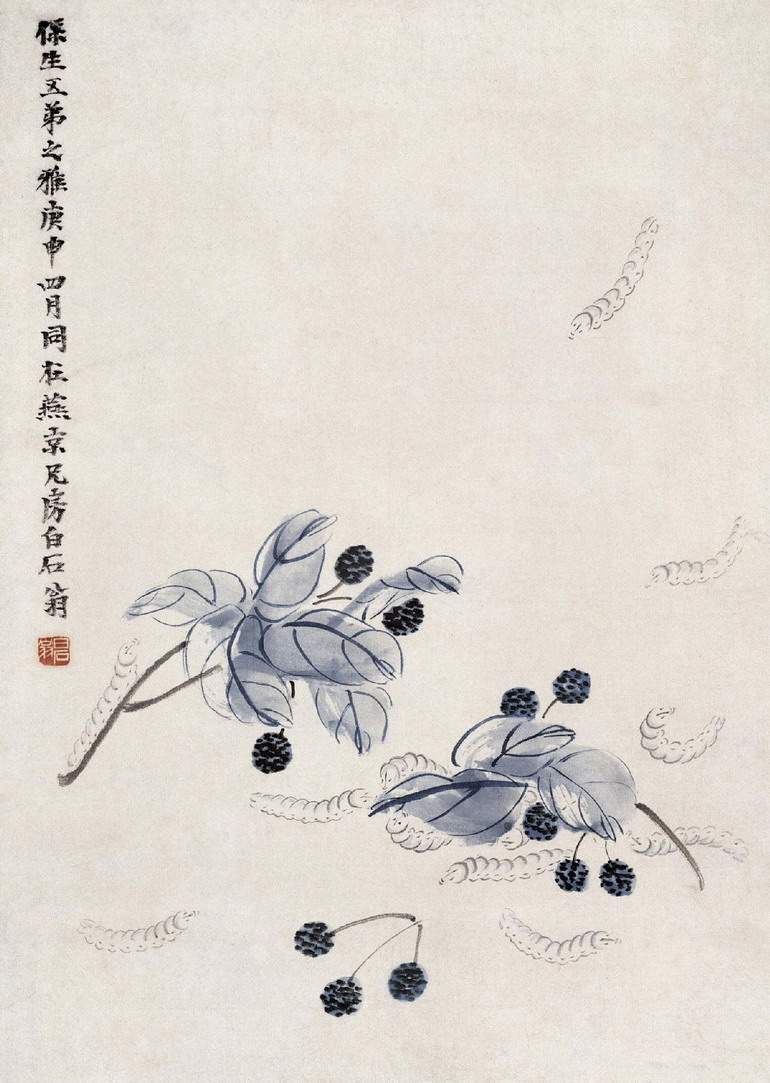 保生五弟之雅庚申四月同在燕京兄房白石翁